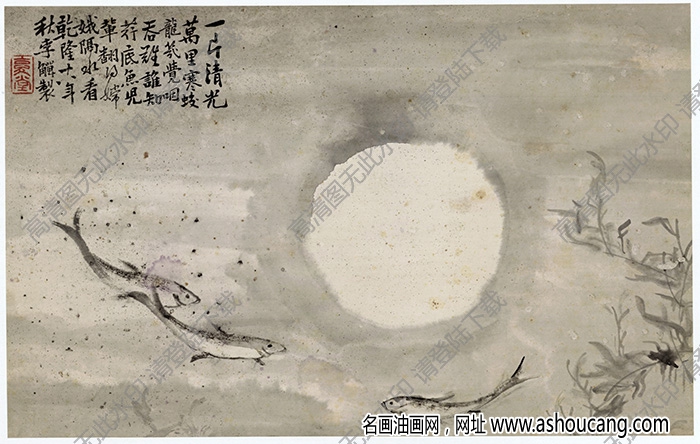 一片清光
萬里寒蛟
龍幾覺咽
吞難誰知
荇底魚兒
輩翻得嫦
娥隔水看
乾隆十八年
秋李鱓製
高清图无此水印 请登陆下载
高清图无此水印 请登陆下载
高清图无此水印 请登陆下载
高清图无此水印 请登陆下载
名画油画网，网址 www.ashoucang.com